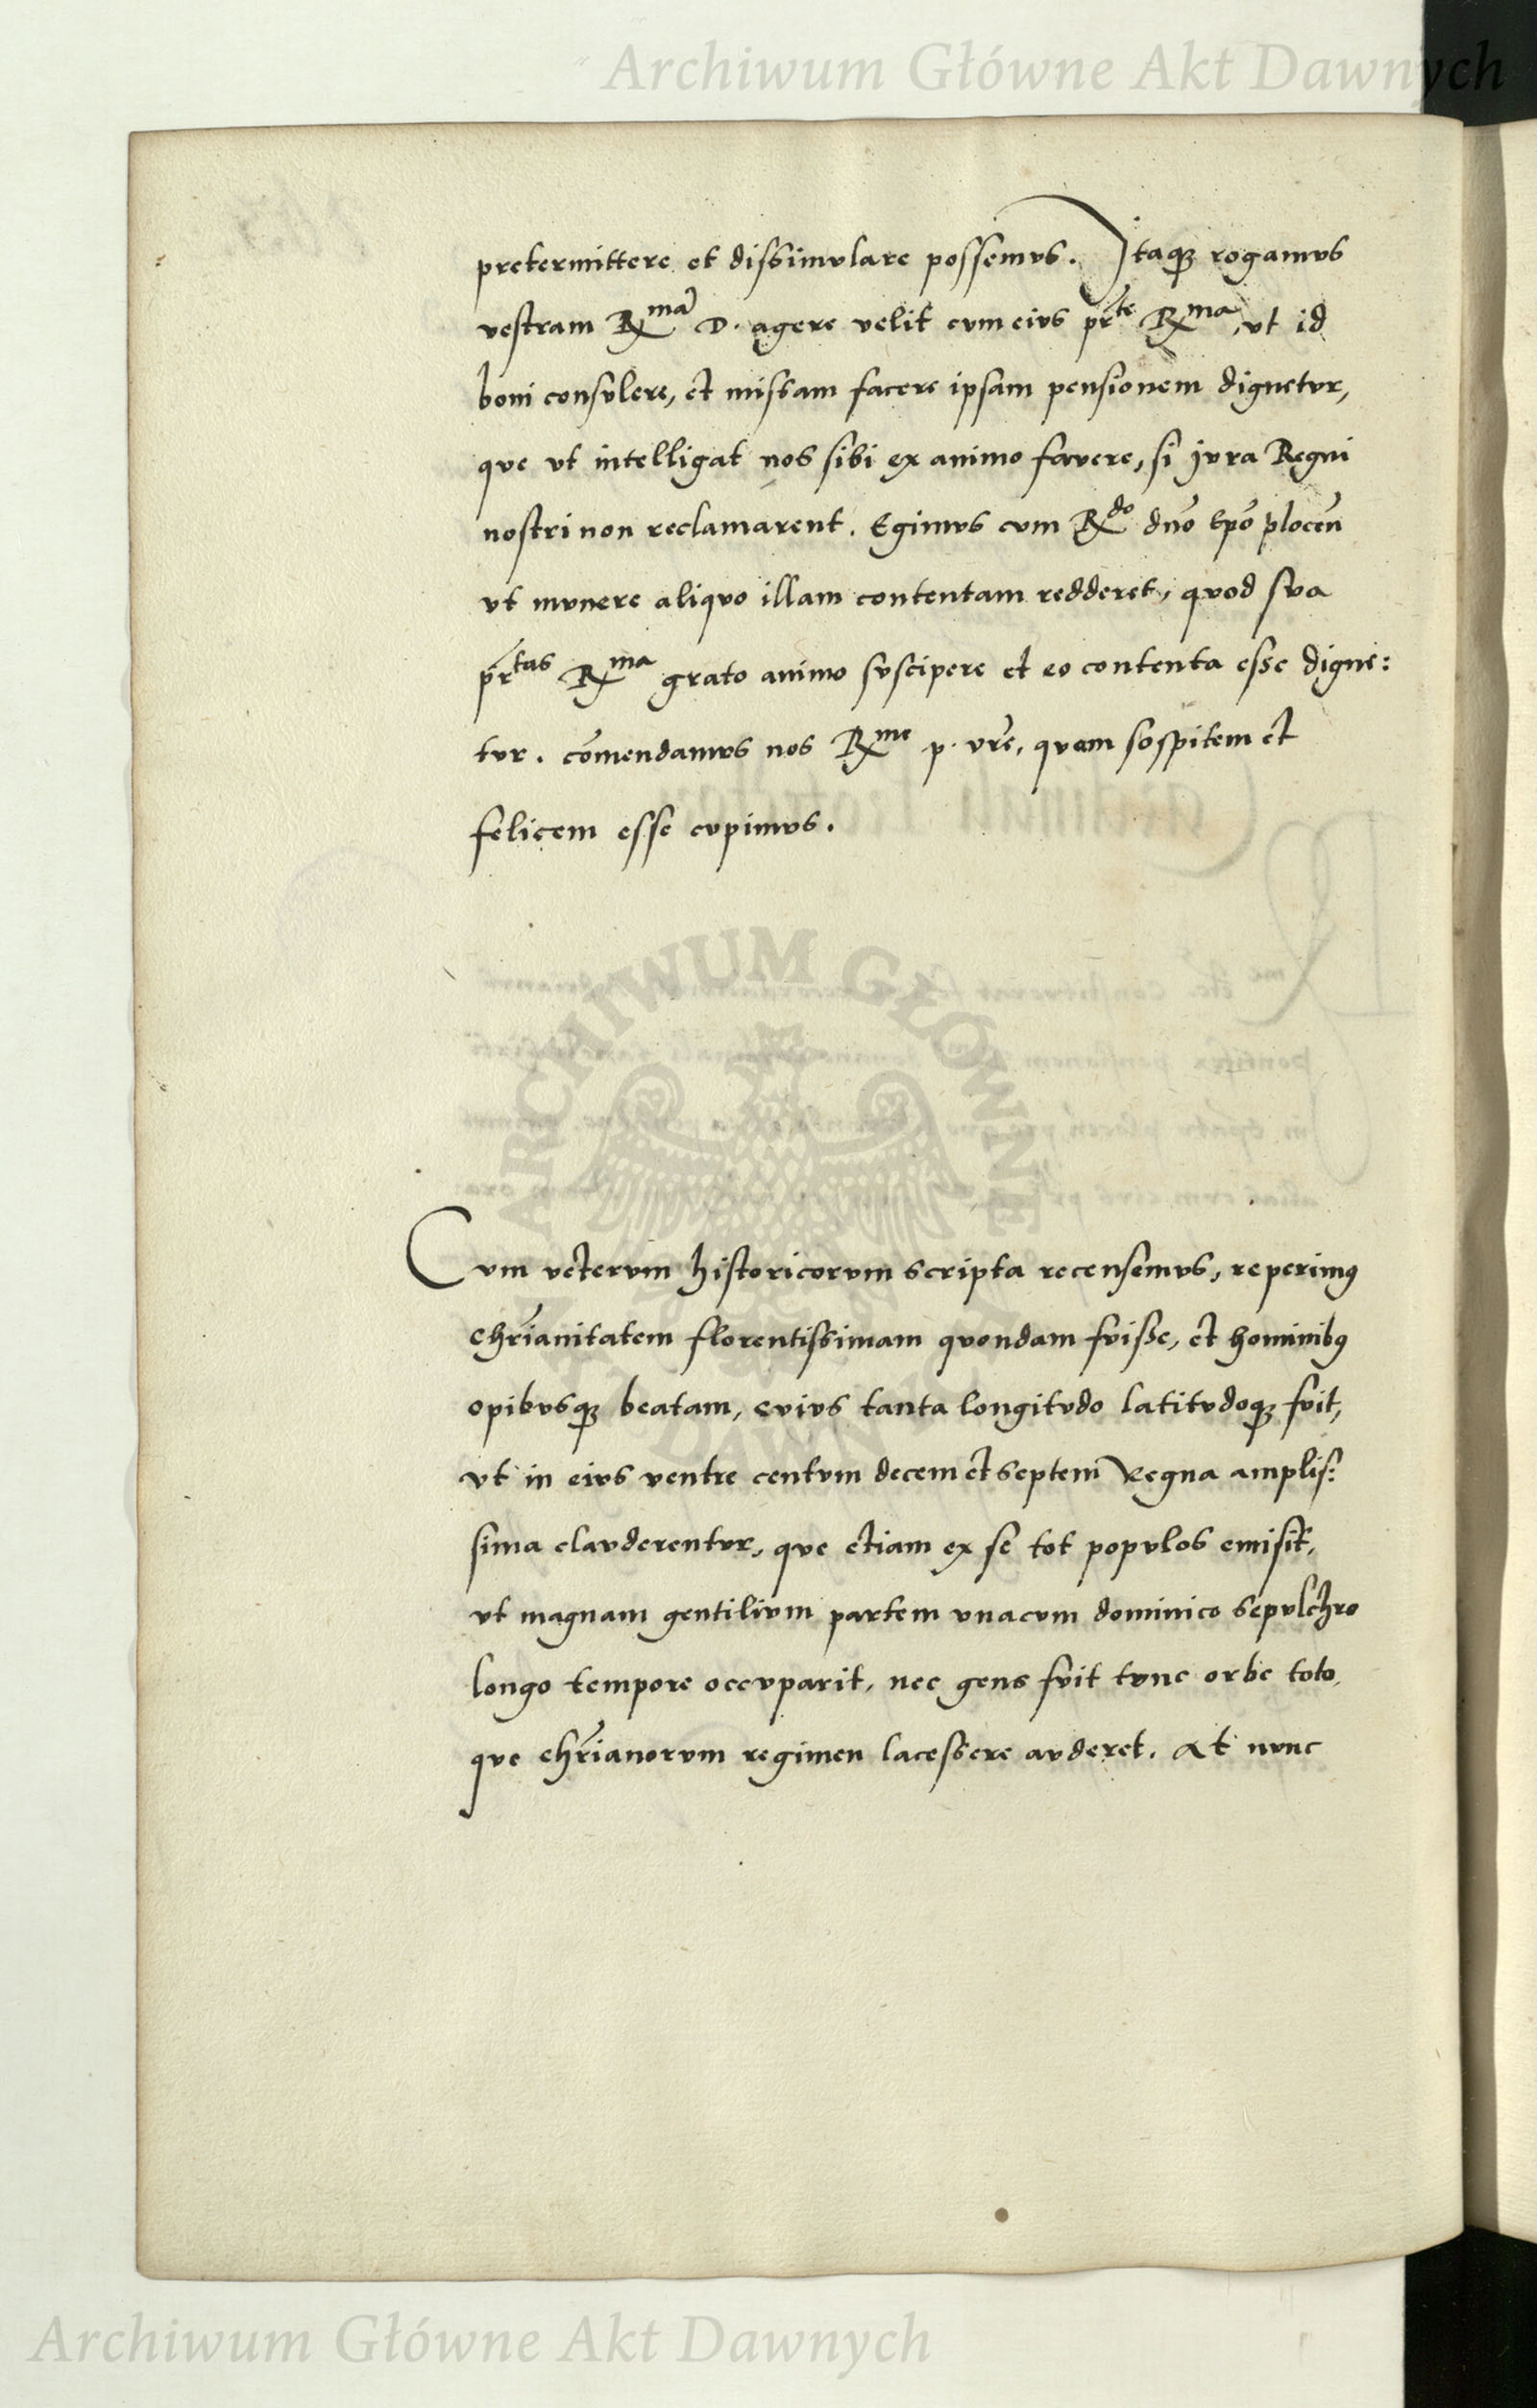 Archiwum Główne Akt Dawnych
pretermittere et dissimulare possemus. Itaq3 rogamus
vestram R^maṃ D. agere velit cum eius pr̄te R^ma, ut id
boni consulere, et missam facere ipsam pensionem dignetur,
que ut intelligat nos sibi ex animo favere, si jura Regni
nostri non reclamarent. Egimus cum R^do dn̄o Ep̄o plocen̄
ut munere aliquo illam contentam redderet, quod sua
pr̄tas R^ma grato animo suscipere et eo contenta esse digne:
tur. com̄endamus nos R^me p. vr̄e, quam sospitem et
felicem esse cupimus.
Cum veterum historicorum scripta recensemus, reperimus
chr̄ianitatem florentissimam quondam fuisse, et hominibus
opibusq3 beatam, cuius tanta longitudo latitudoq3 fuit,
ut in eius ventre centum decem et septem Regna amplis:
sima clauderentur, que etiam ex se tot populos emisit,
ut magnam gentilium partem unacum dominico sepulchro
longo tempore occuparit, nec gens fuit tunc orbe toto,
que chr̄ianorum regimen lacessere auderet. At nunc
ARCHIWUM GŁÓWNE AKT DAWNYCH
Archiwum Główne Akt Dawnych